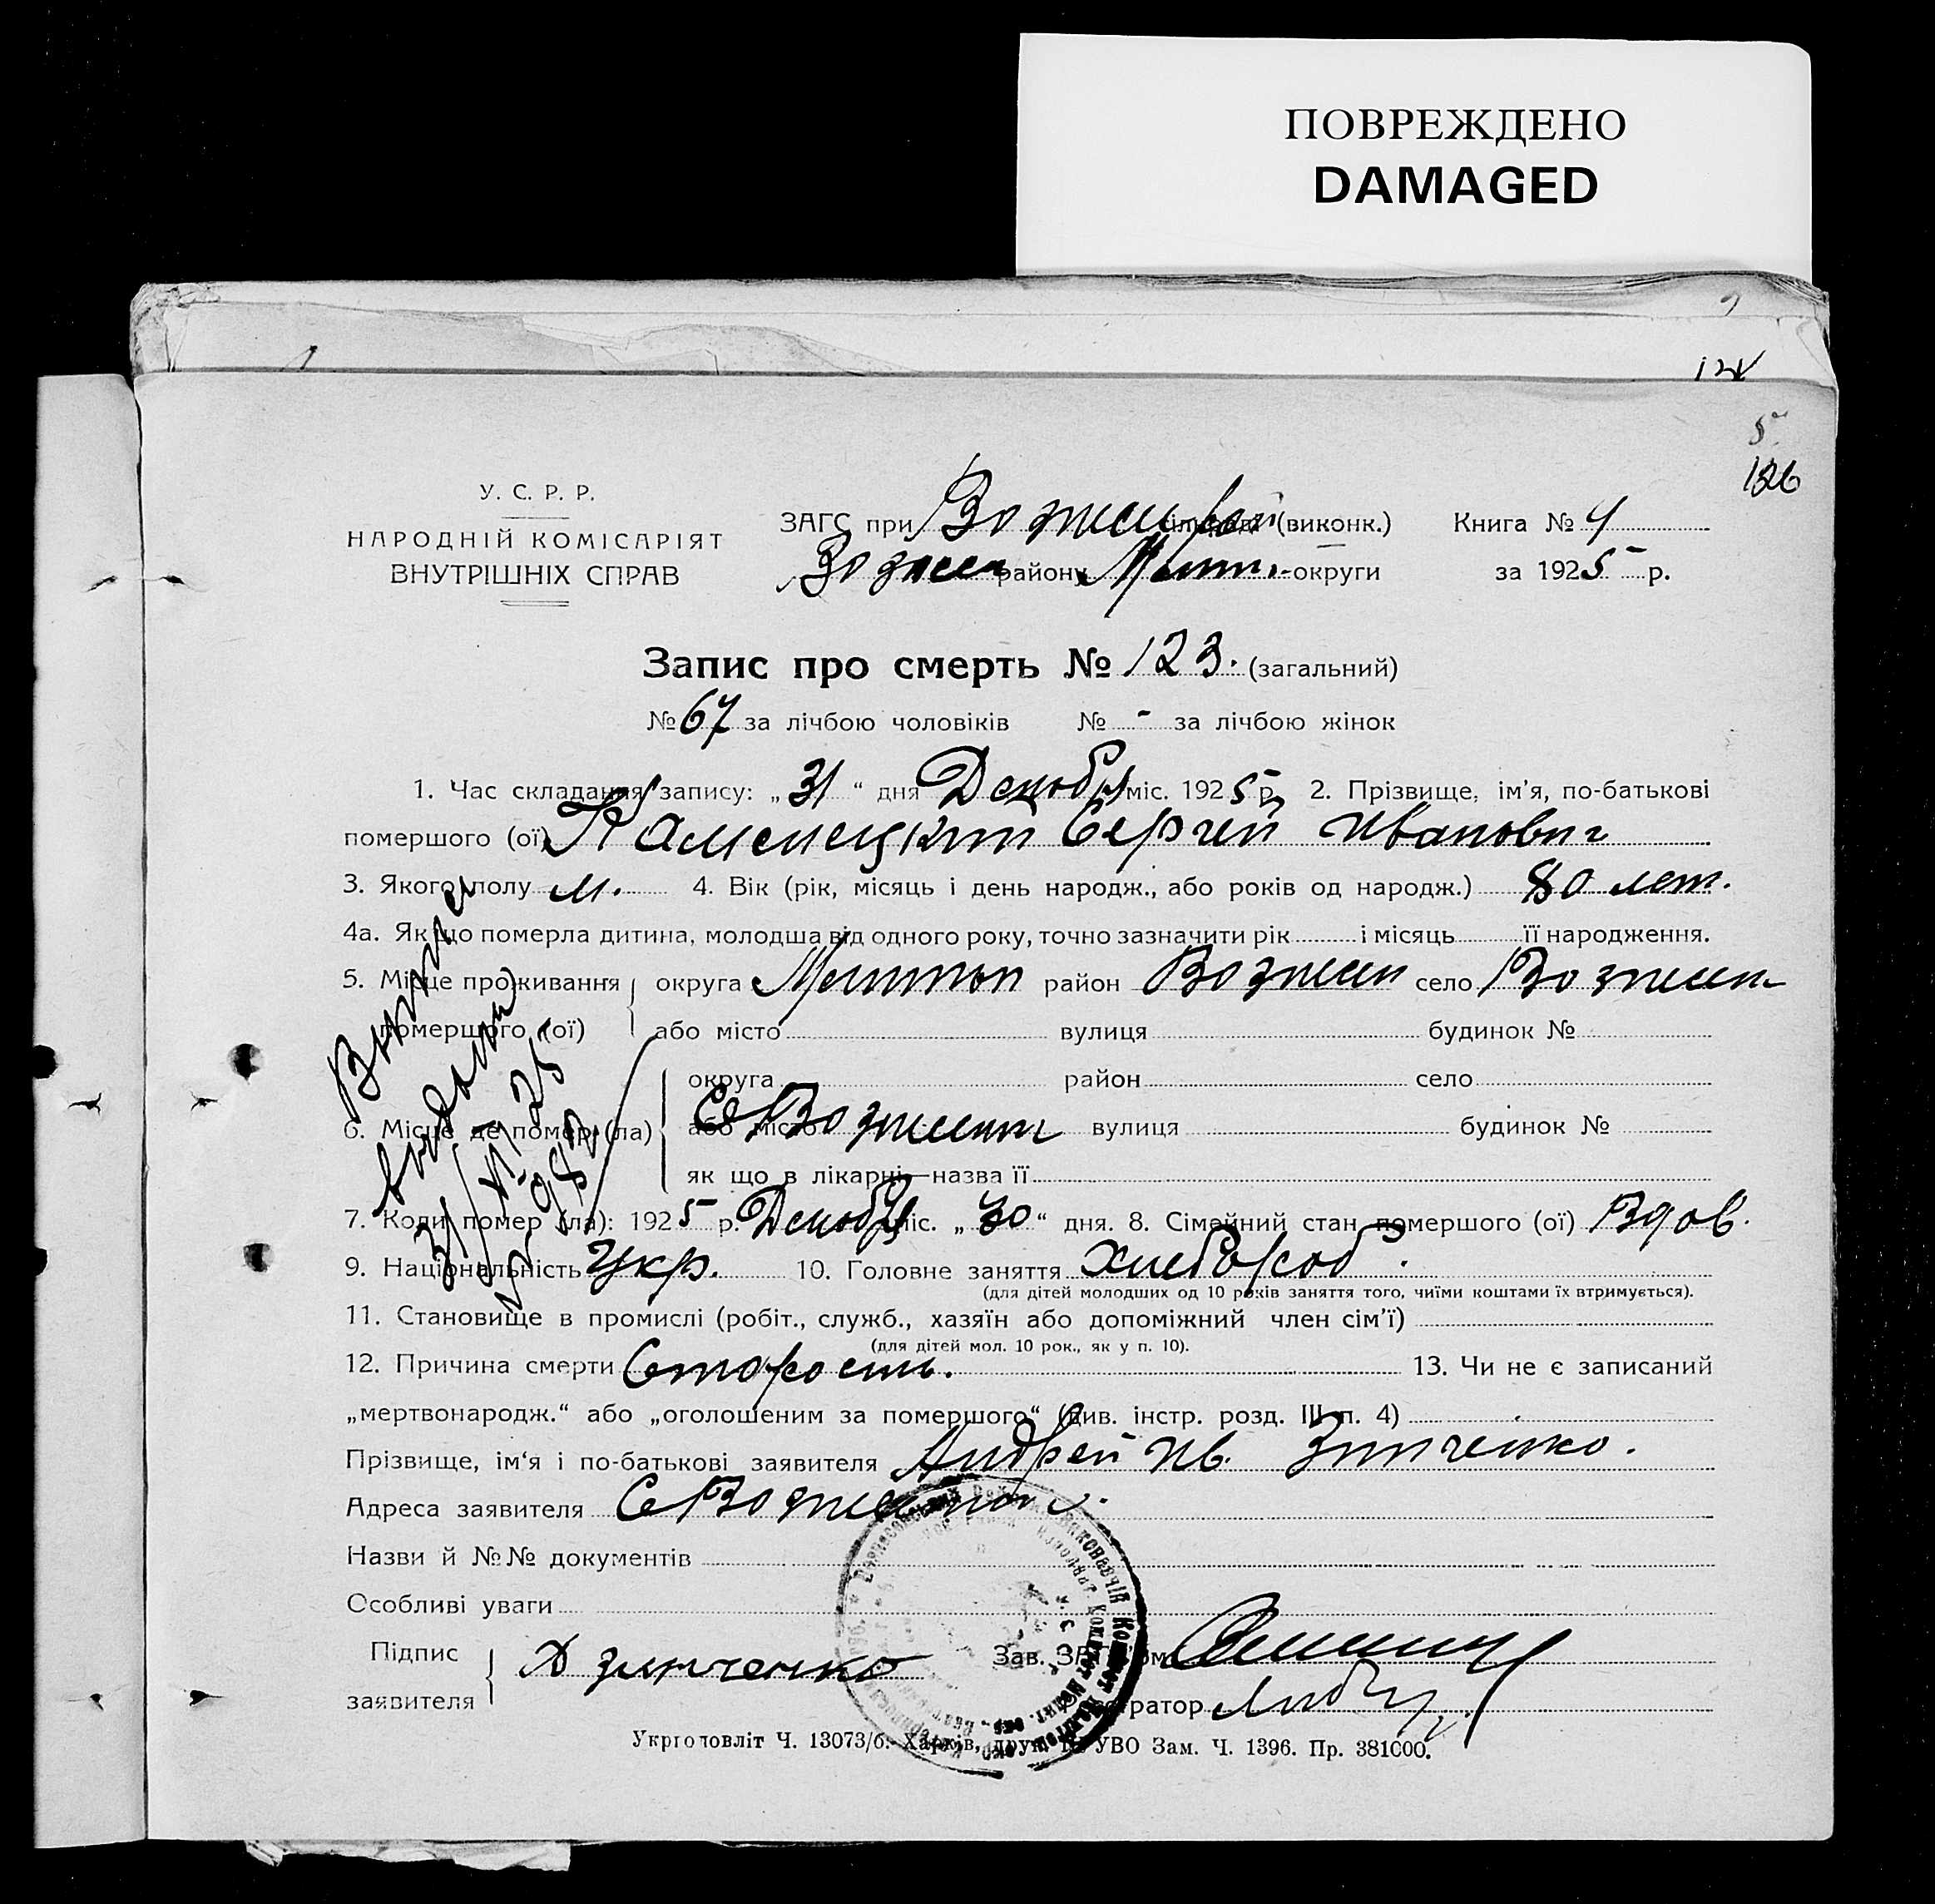 ПОВРЕЖДЕНО
DAMAGED
124
5
126
У. С. Р. Р.
НАРОДНІЙ КОМІСАРІЯТ
ВНУТРІШНІХ СПРАВ
ЗАГС при (виконк.) Книга № 4
Вознесен району Мелит. округи за 1925 р.
Запис про смерть № 123. (загальний)
№ 67 за лічбою чоловіків № - за лічбою жінок
1. Час складання запису: „31“ дня Декабря міс. 1925 р. 2. Прізвище, ім'я, по-батькові
помершого (ої) Каменецкий Сергей Иванович
3. Якого полу м. 4. Вік (рік, місяць і день народж., або років од народж.) 80 лет.
4а. Як що померла дитина, молодша від одного року, точно зазначити рік і місяць її народження.
5. Місце проживання округа Мелитоп район Вознесен село Вознесен
помершого (ої) або місто вулиця будинок №
округа район село
6. Місце де помер (ла) або місто С Вознесен вулиця будинок №
як що в лікарні—назва її
7. Коли помер (ла): 1925 р. Декабря міс. „30“ дня. 8. Сімейний стан помершого (ої) Вдов.
9. Національність Укр. 10. Головне заняття Хлебороб.
(для дітей молодших од 10 років заняття того, чиїми коштами їх втримується).
11. Становище в промислі (робіт., служб., хазяїн або допоміжний член сім'ї)
(для дітей мол. 10 рок., як у п. 10).
12. Причина смерти Старость. 13. Чи не є записаний
„мертвонародж.“ або „оголошеним за помершого“ (див. інстр. розд. III п. 4)
Прізвище, ім'я і по-батькові заявителя Андрей Ив. Зинченко.
Адреса заявителя С Вознесен
Назви й №№ документів
Особливі уваги
Підпис
заявителя А Зинченко Зав.
Укрголовліт Ч. 13073/б. Харків, друк. УВО Зам. Ч. 1396. Пр. 381000.